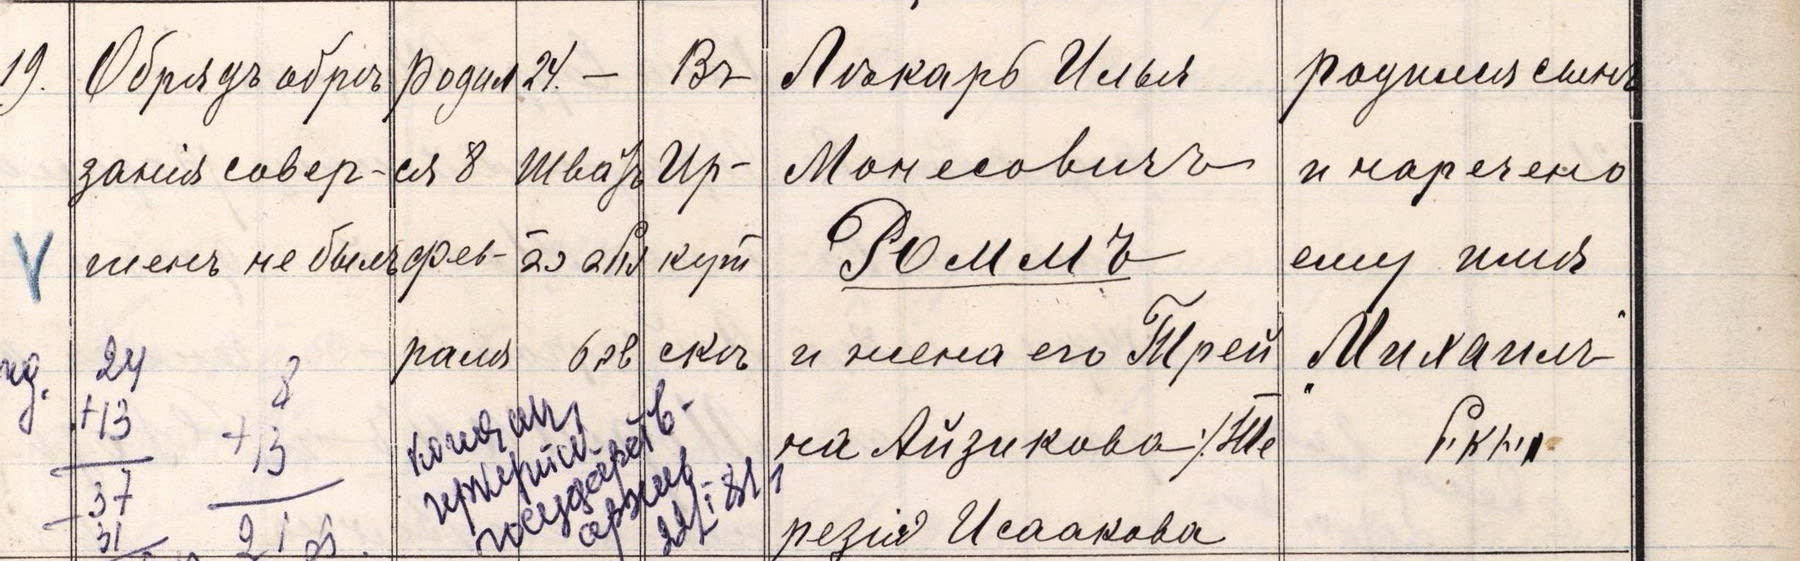 19.
Обрядъ обрѣ
занія совер-
шенъ не былъ
родил
ся 8
фев-
раля
24. —
Шват
Въ
Ир-
кут
скѣ
Лѣкарь Илья
Монесовичъ
Роммъ
и жена его Трей
на Айзикова /:Те
резія Исаакова
родился сынъ
и наречено
ему имя
"Михаилъ"
24
+13
37
31
8
+13
21
копия
государств
архив
22/I-81